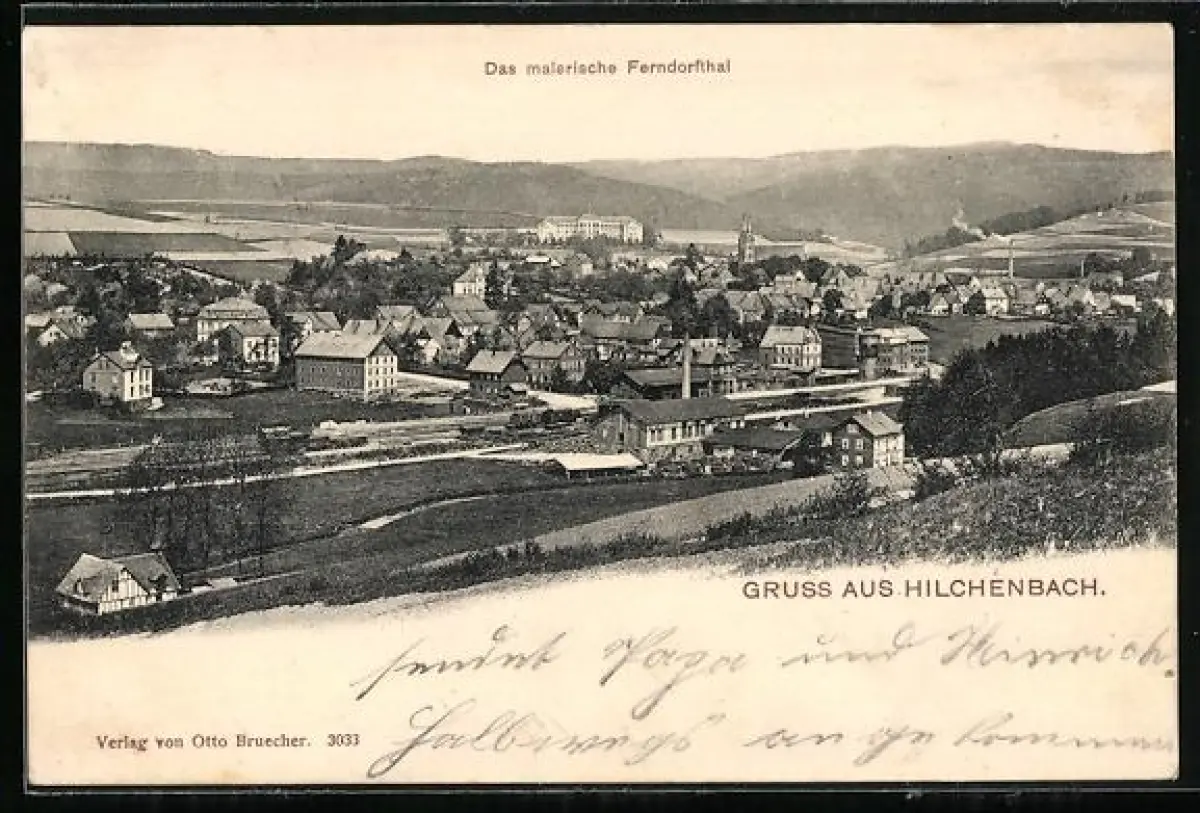 Das malerische Ferndorfthal
GRUSS AUS HILCHENBACH.
sendet Papa und Hinrich.
Halbwegs an ge kommen
Verlag von Otto Bruecher. 3033